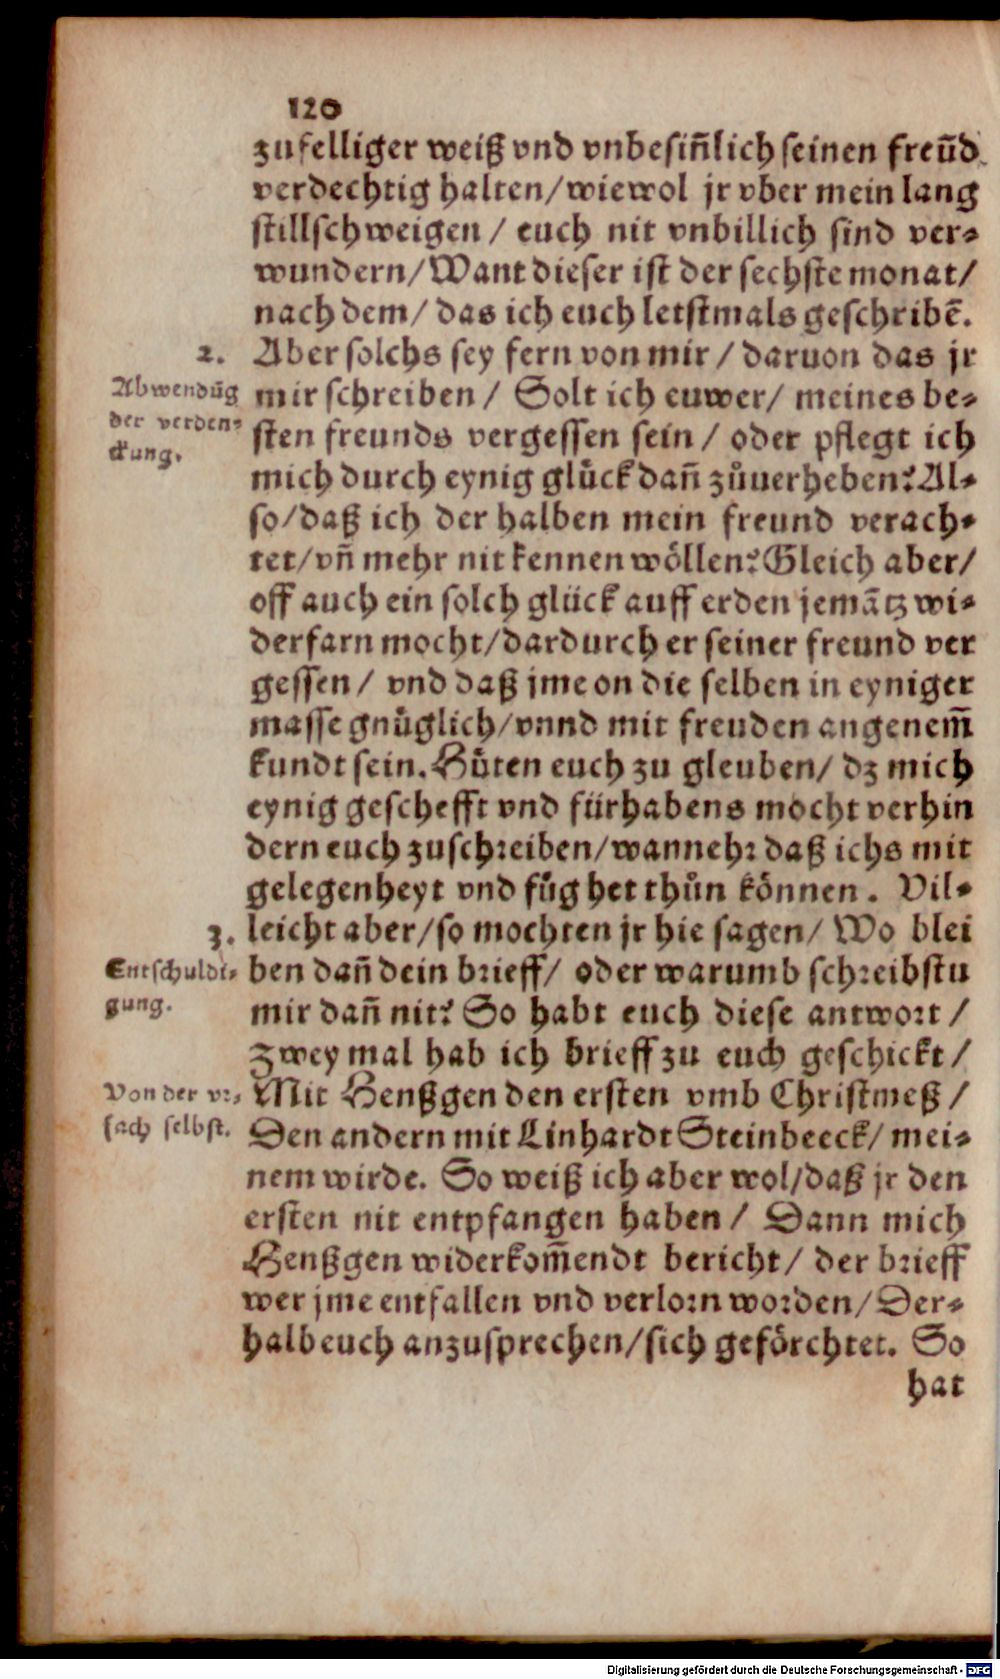 120
zufelliger weiß vnd vnbesiñlich seinen freũd
verdechtig halten/wiewol jr vber mein lang
stillschweigen / euch nit vnbillich sind ver⸗
wundern/Want dieser ist der sechste monat/
nach dem/ das ich euch letstmals geschribẽ.
2. Aber solchs sey fern von mir / daruon das jr
Abwendũg
der verden⸗
ckung.
mir schreiben / Solt ich euwer/ meines be⸗
sten freunds vergessen sein / oder pflegt ich
mich durch eynig glůck dañ zůuerheben? Al⸗
so/daß ich der halben mein freund verach⸗
tet/vñ mehr nit kennen wöllen? Gleich aber/
off auch ein solch glück auff erden jemãtz wi⸗
derfarn mocht/dardurch er seiner freund ver
gessen / vnd daß jme on die selben in eyniger
masse gnůglich/vnnd mit freuden angenem̃
kundt sein. Hůten euch zu gleuben/ dz mich
eynig geschefft vnd fürhabens mocht verhin
dern euch zuschreiben/wannehr daß ichs mit
gelegenheyt vnd fůg het thůn können. Vil⸗
3. leicht aber/so mochten jr hie sagen/ Wo blei
Entschuldi⸗
gung.
ben dañ dein brieff/ oder warumb schreibstu
mir dañ nit? So habt euch diese antwort /
Zwey mal hab ich brieff zu euch geschickt /
Von der vr⸗
sach selbst.
Mit Henßgen den ersten vmb Christmeß /
Den andern mit Linhardt Steinbeeck/ mei⸗
nem wirde. So weiß ich aber wol/daß jr den
ersten nit entpfangen haben / Dann mich
Henßgen widerkom̃endt bericht/ der brieff
wer jme entfallen vnd verlorn worden/Der⸗
halb euch anzusprechen/sich geförchtet. So
hat
Digitalisierung gefördert durch die Deutsche Forschungsgemeinschaft - DFG